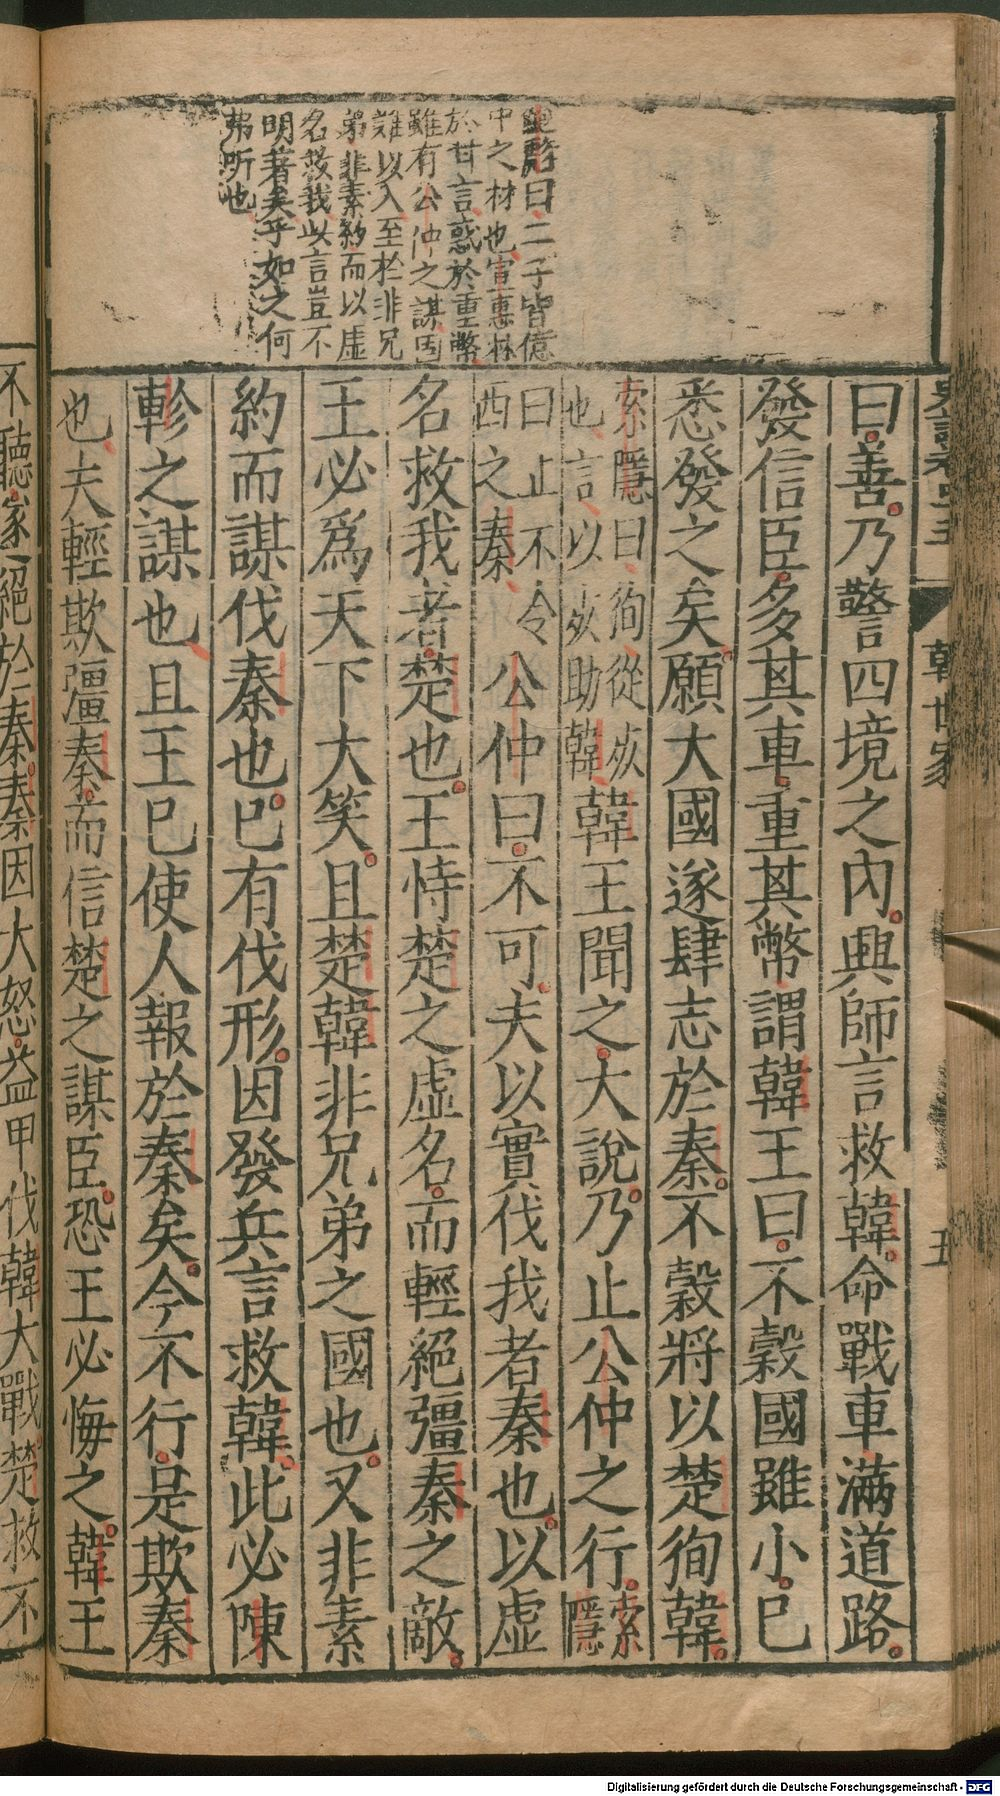 曰二子皆億
中之材也宣惠林
於甘言惑於重幣
雖有公仲之謀固
難以入至於非兄
弟非素約而以虛
名救我此言豈不
明著矣乎如之何
弗听也
韓世家
五
曰善乃警四境之內興師言救韓命戰車滿道路
發信臣多其車重其幣謂韓王曰不穀國雖小已
悉發之矣願大國遂肆志於秦不穀將以楚徇韓
索隱曰徇從死
也言以死助韓
韓王聞之大說乃止公仲之行
索
隱
曰止不令
西之秦
公仲曰不可夫以實伐我者秦也以虛
名救我者楚也王恃楚之虛名而輕絕彊秦之敵
王必為天下大笑且楚韓非兄弟之國也又非素
約而謀伐秦也已有伐形因發兵言救韓此必陳
軫之謀也且王已使人報於秦矣今不行是欺秦
也夫輕欺彊秦而信楚之謀臣恐王必悔之韓王
不聽遂絕於秦秦因大怒益甲伐韓大戰楚救不
Digitalisierung gefördert durch die Deutsche Forschungsgemeinschaft - DFG